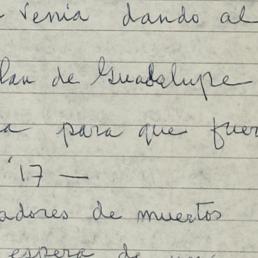 venia dando al
lan de Guadalupe
a para que fuer
'17 —
adores de muertos
espera de